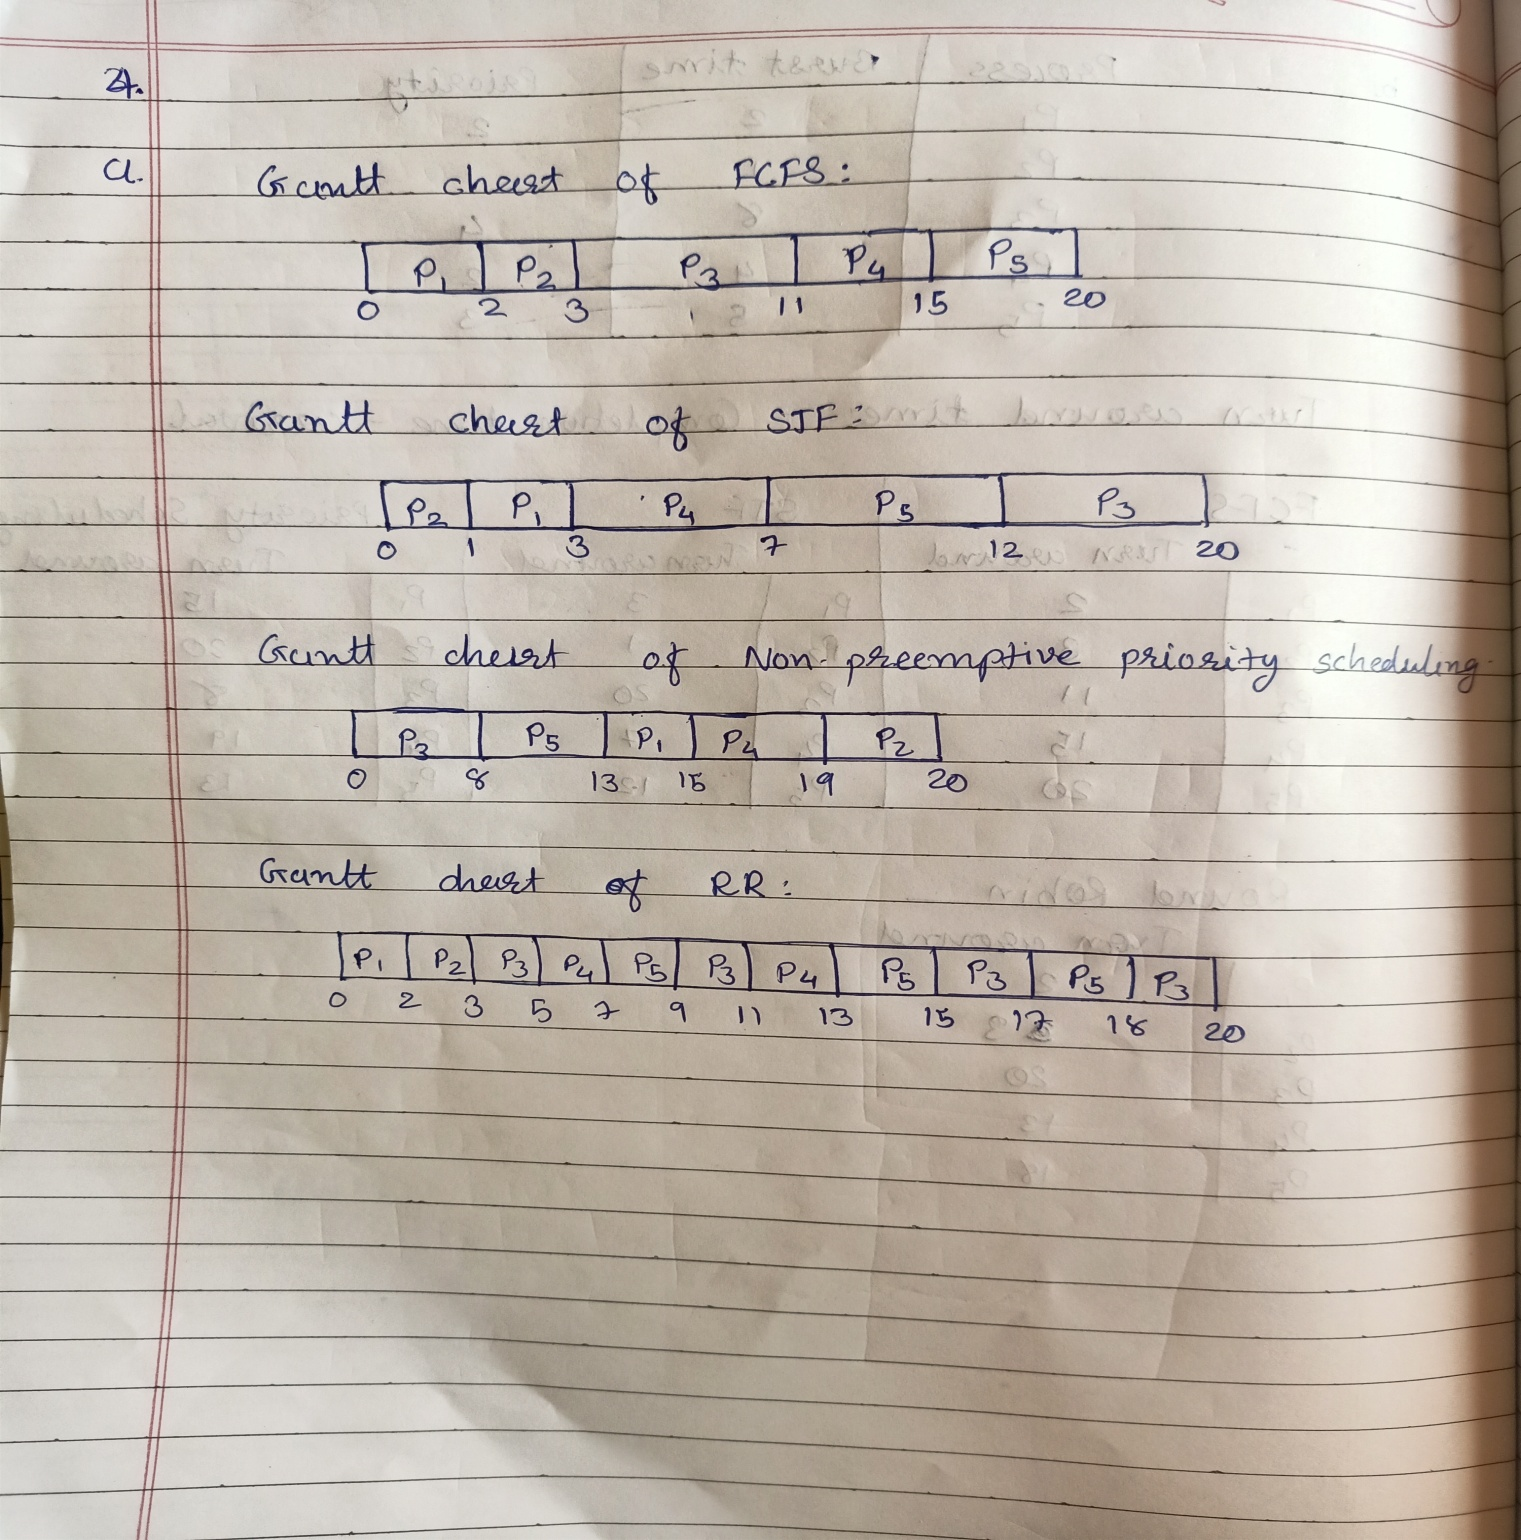 4.
a. Gantt chart of FCFS:
P1 P2 P3 P4 P5
0 2 3 11 15 20
Gantt chart of SJF:
P2 P1 P4 P5 P3
0 1 3 7 12 20
Gantt chart of Non-preemptive priority scheduling
P3 P5 P1 P4 P2
0 8 13 15 19 20
Gantt chart of RR:
P1 P2 P3 P4 P5 P3 P4 P5 P3 P5 P3
0 2 3 5 7 9 11 13 15 17 18 20